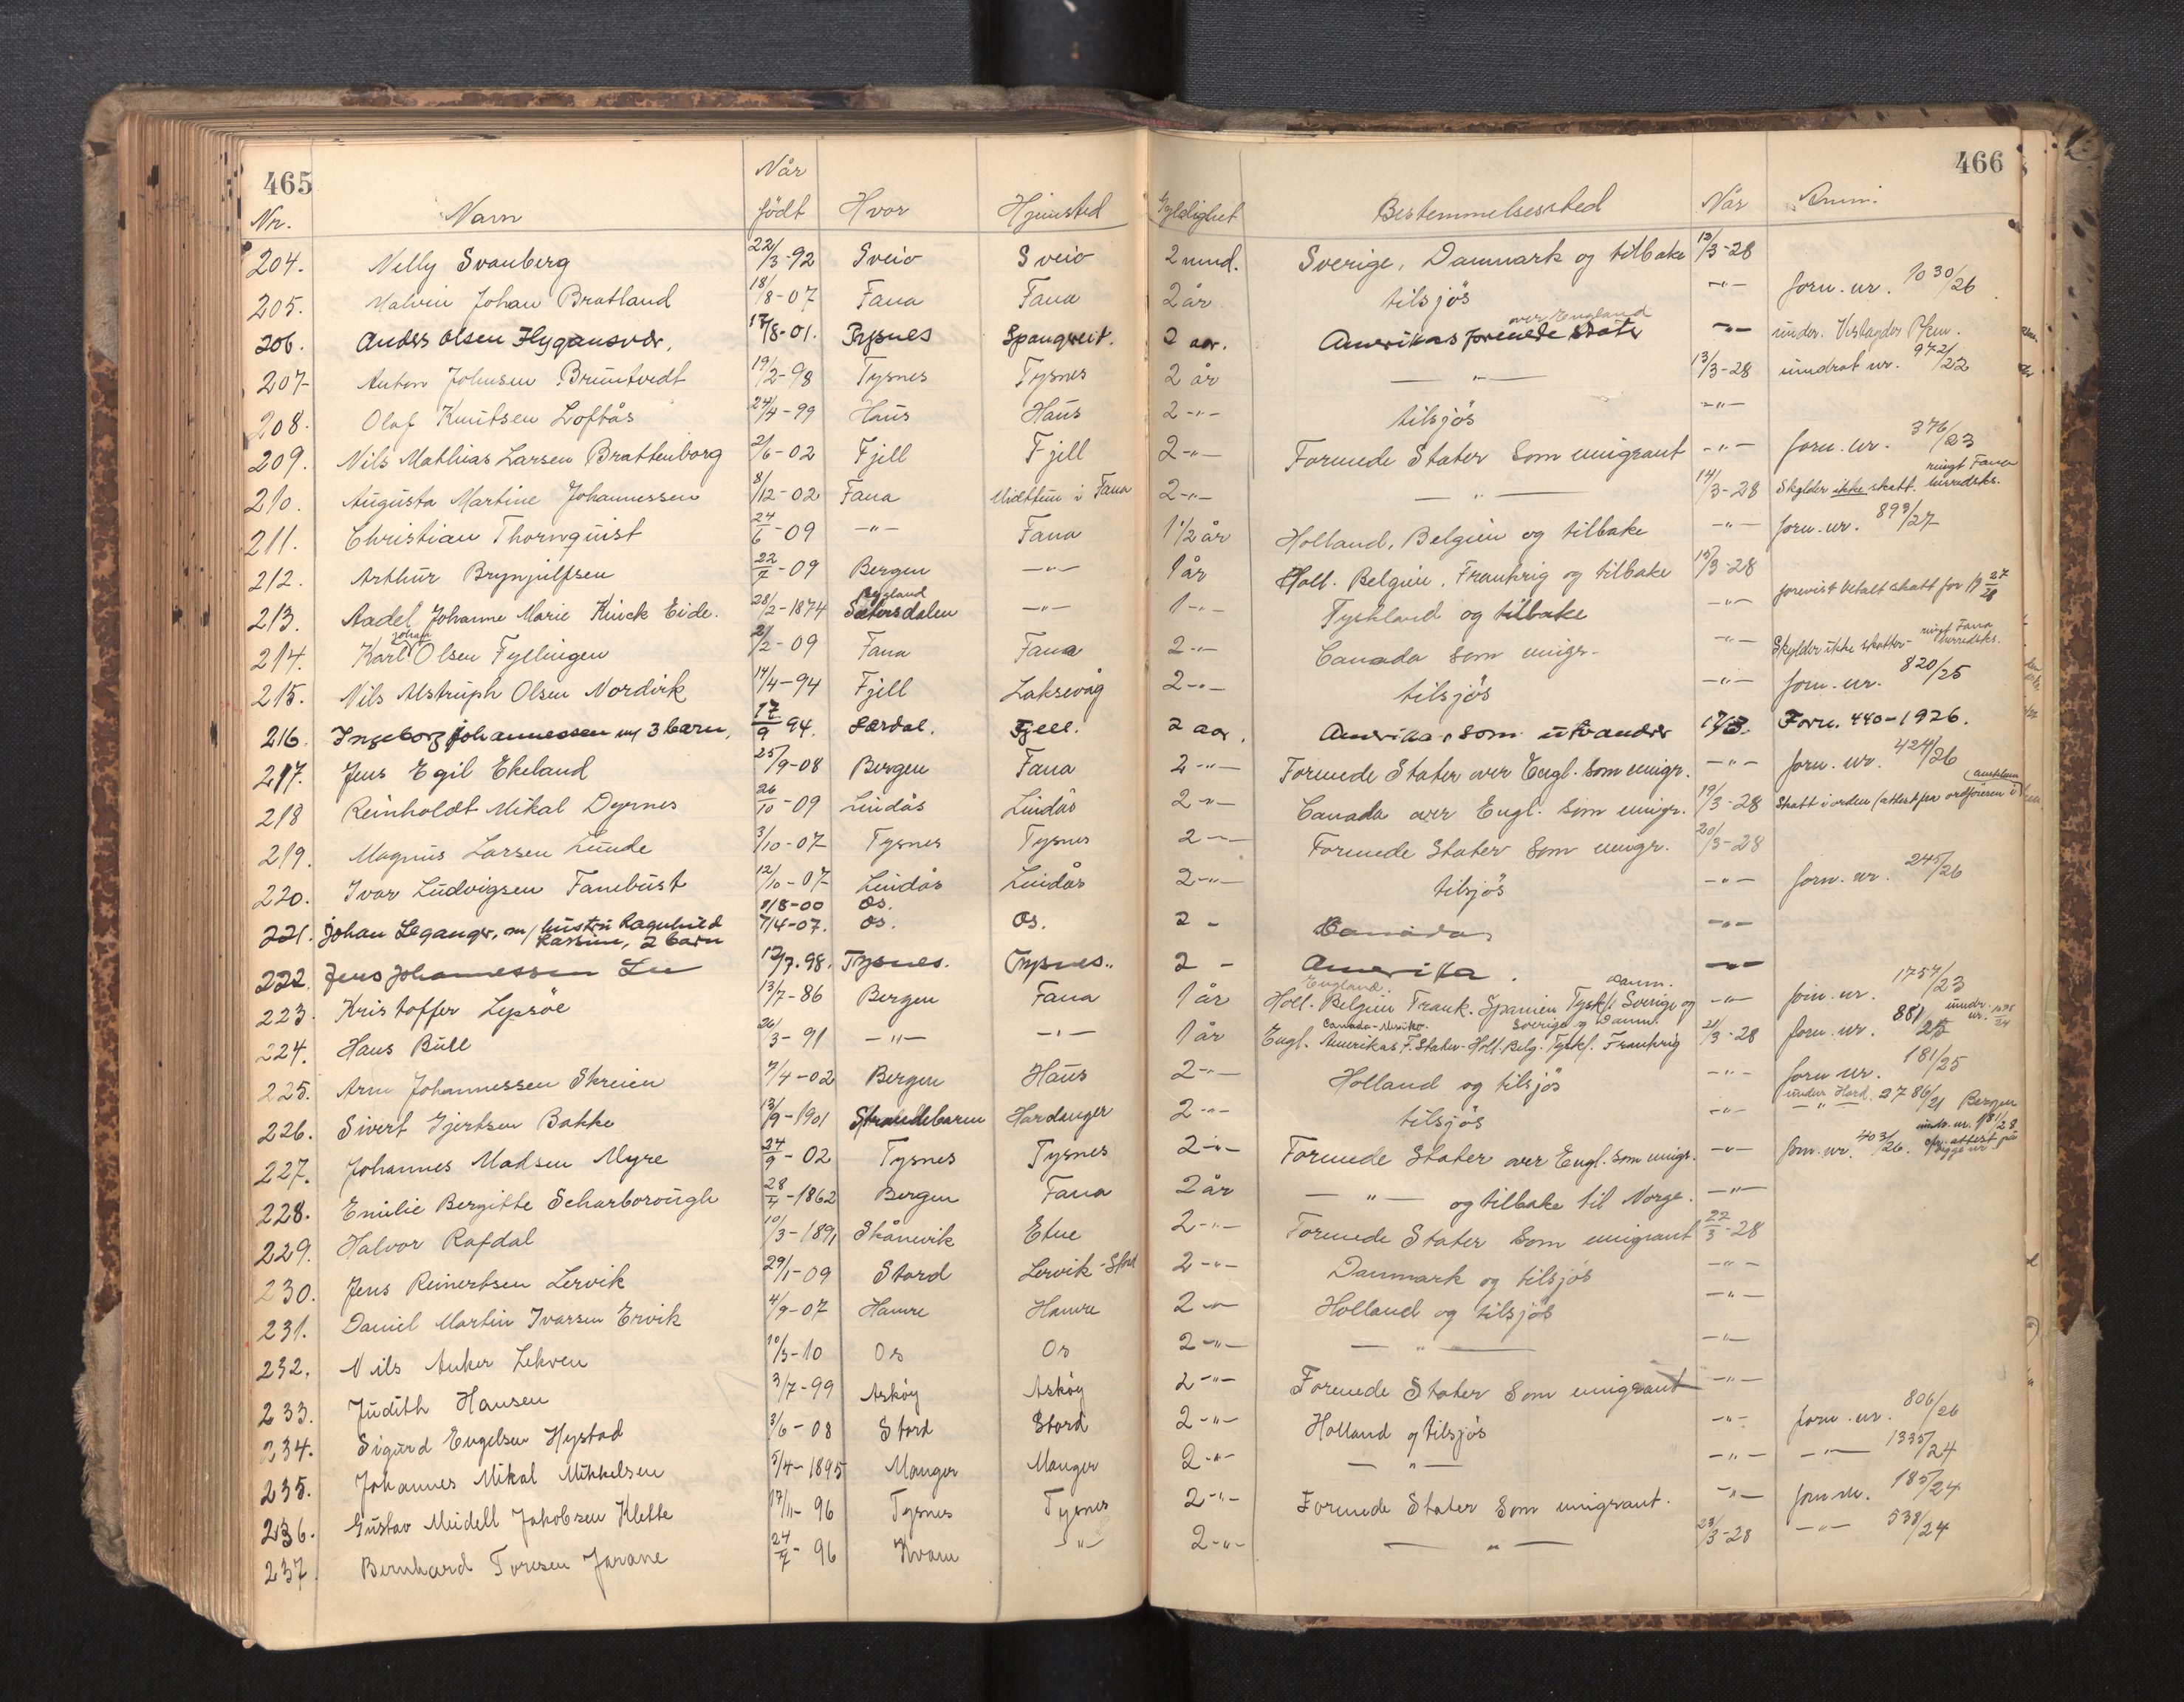 465 466
Når
Nr. Navn født Hvor Hjemsted Gyldighet Bestemmelsessted Når Anm.
204. Nelly Svanberg 22/3-92 Sveio Sveio 2 mnd. Sverige, Danmark og tilbake 13/3-28
205. Malvin Johan Bratland 18/8-07 Fana Fana 2 år tilsjøs -"- forn. nr. 1030/26
over England
206. Anders Olsen Flygansvær. 17/8-01. Tysnes Spangreit. 2 aar. Amerikas forenede stater -"- under. Vestagder Pkm.
207 Anton Johnsen Bruntvedt 19/2-98 Tysnes Tysnes 2 år -"- 13/3-28 inndrat nr. 972/22
208. Olaf Knutsen Loftås 24/4-99 Haus Haus 2-"- tilsjøs -"-
209. Nils Mathias Larsen Brattenborg 2/6-02 Fjell Fjell 2-"- Forenede Stater som emigrant -"- forn. nr. 376/23
ringt Fana
210. Augusta Martine Johannessen 8/12-02 Fana Midttun i Fana 2-"- -"- 14/3-28 Skylder ikke skatt. herredsks.
211. Christian Thornquist 24/6-09 -"- Fana 1 1/2 år Holland, Belgien og tilbake -"- forn. nr. 893/27
212. Arthur Brynjulfsen 22/7-09 Bergen -"- 1 år Holl. Belgien, Frankrig og tilbake 15/3-28
Bygland
213. Aadel Johanne Marie Kinck Eide. 28/2-1874 Sætersdalen -"- 1-"- Tyskland og tilbake -"- forevist betalt skatt for 19 27/28
Johan ringt Fana
214. Karl Olsen Fyllingen 2/2-09 Fana Fana 2-"- Canada som emigr. -"- Skylder ikke skatter- herredsks.
215. Nils Alstruph Olsen Nordvik 14/4-94 Fjell Laksevåg 2-"- tilsjøs -"- forn. nr. 820/25
216. Ingeborg Johannessen m/ 3 barn, 17/9 94. Lærdal. Fjell. 2 aar, Amerika, som utvandrer 17/3. Forn. 440-1926.
217. Jens Egil Ekeland 25/9-08 Bergen Fana 2-"- Forenede Stater over Engl. som emigr. -"- forn. nr. 424/26
218 Reinholdt Mikal Dyrnes 26/10-09 Lindås Lindås 2-"- Canada over Engl. som emigr. 19/3-28 Skatt i orden (attest fra ordføreren i
219. Magnus Larsen Lunde 3/10-07 Tysnes Tysnes 2-"- Forenede Stater som emigr. 20/3-28
220. Ivar Ludvigsen Fanebust 12/10-07 Lindås Lindås 2-"- tilsjøs -"- forn. nr. 245/26
8/8-00 Os.
221. Johan Leganger, m/ hustru Ragnhild 7/4-07. Os. Os. 2 - Canada -"-
Rassine, 2 barn
222. Jens Johannessen Lie 12/7.98. Tysnes. Tysnes. 2 - Amerika. -"-
England. Danm.
223. Kristoffer Lepsøe 13/7-86 Bergen Fana 1 år Holl. Belgien Frank. Spanien Tyskl. Sverige og -"- forn. nr. 1757/23
Canada-Mexiko. Sverige og Danm. inndr. nr.
224. Hans Bull 26/3-91 -"- -"- 1 år Engl. Amerikas F. Stater-Holl. Belg. Tyskl. Frankrig 21/3-28 forn. nr. 881/25
225. Arne Johannessen Skreien 7/4-02 Bergen Haus 2-"- Holland og tilsjøs -"- forn nr. 181/25
under Hard.
226. Sivert Gjertsen Bakke 13/9-1901 Strandebarm Hardanger 2-"- tilsjøs -"- -"- 2786/21 Bergen
227. Johannes Madsen Myre 24/9-02 Tysnes Tysnes 2-"- Forenede Stater over Engl. som emigr. -"- forn. nr. 403/26.
228. Emilie Bergitte Scharborough 28/4-1862 Bergen Fana 2 år -"- og tilbake til Norge. -"-
229. Halvor Rafdal 10/3-1891 Skånevik Etne 2-"- Forenede Stater som emigrant 22/3-28
230. Jens Reinertsen Lervik 29/1-09 Stord Lervik-Stord 2-"- Danmark og tilsjøs -"-
231. Daniel Martin Ivarsen Ervik 4/9-07 Hamre Hamre 2-"- Holland og tilsjøs -"-
232. Nils Anker Lekven 10/3-10 Os Os 2-"- -"- -"-
233. Judith Hansen 3/7-99 Askøy Askøy 2-"- Forenede Stater som emigrant -"-
234. Sigurd Engelsen Hystad 3/6-08 Stord Stord 2-"- Holland og tilsjøs -"- forn. nr. 806/26
235. Johannes Mikal Mikkelsen 5/4-1895 Manger Manger 2-"- -"- -"- -"- 1335/24
236. Gustav Meidell Jakobsen Klette 17/11-96 Tysnes Tysnes 2-"- Forenede Stater som emigrant. -"- forn nr. 185/24
237. Bernhard Toresen Jarane 24/7-96 Kvam -"- 2-"- -"- 23/3-28 -"- 538/24